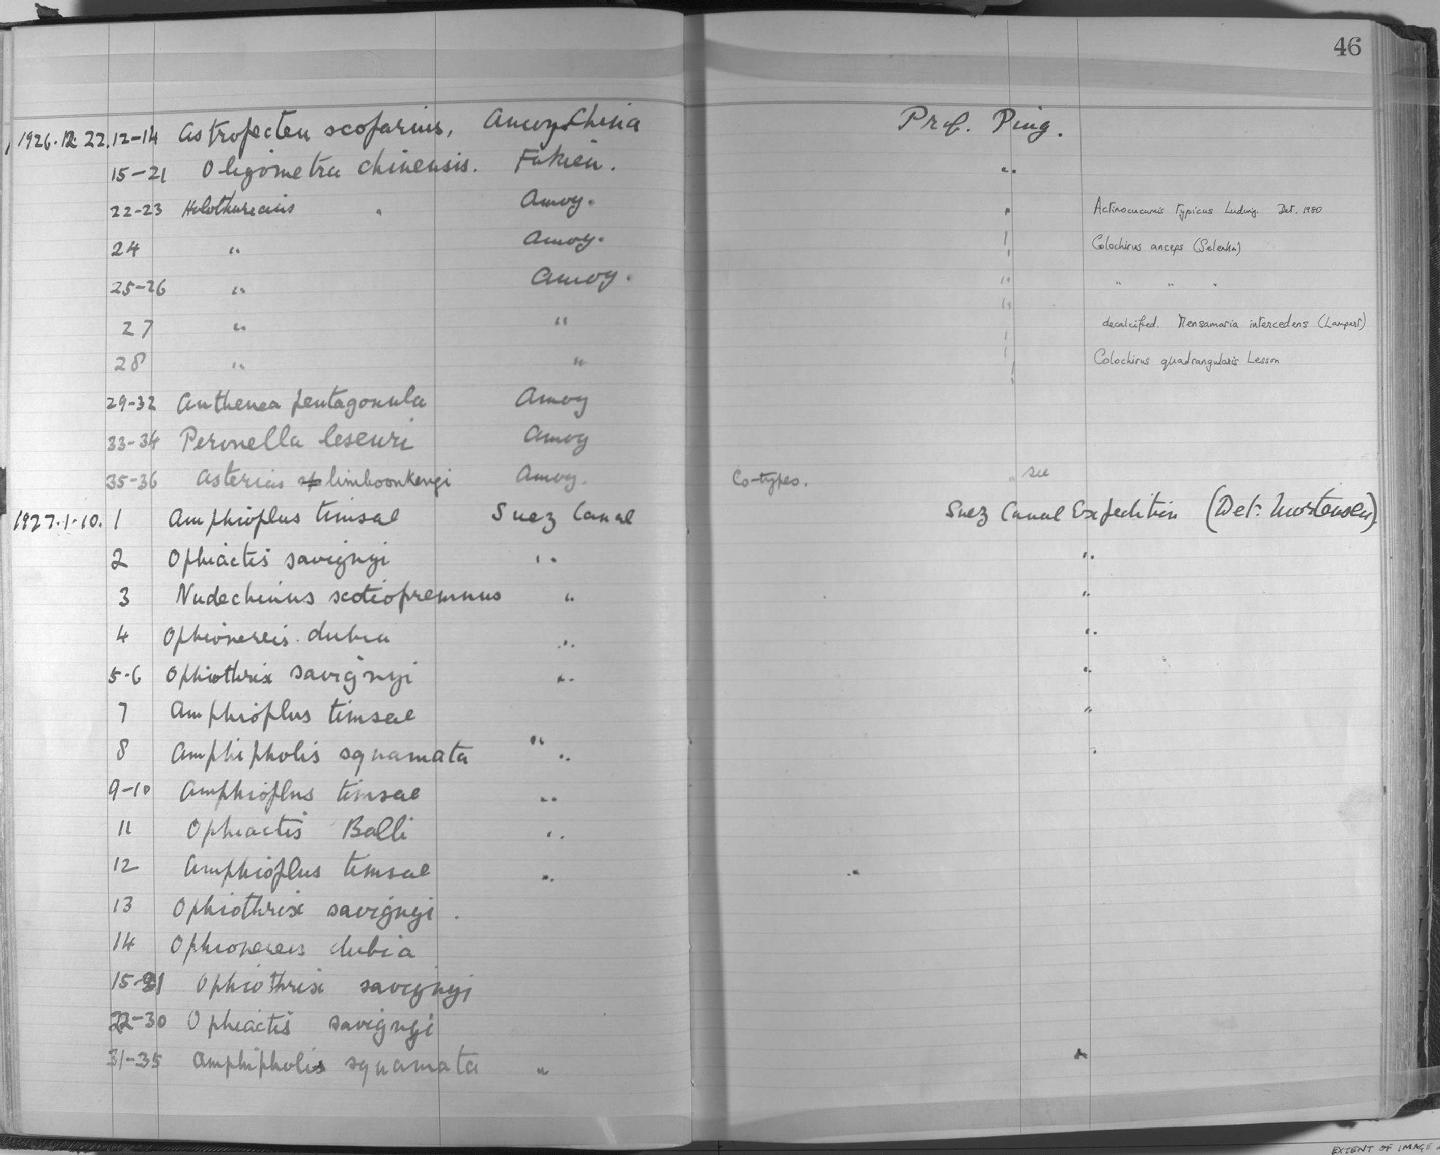 46
1926.12.22.12-14 Astropecten scoparius, Amoy China Prof. Ping.
15-21 Oligometra chinensis. Fukien. "
22-23 Holothurians Amoy. " Actinocucumis typicus Ludwig. Det. 1980
24 " Amoy. " Colochirus anceps (Selenka)
25-26 " Amoy. " " " "
27 " " " decalcified. Mensamaria intercedens (Lampert)
28 " " " Colochirus quadrangularis Lesson
29-32 Anthenea pentagonula Amoy
33-34 Peronella leseuri Amoy
35-36 Asterias limboonkengi Amoy. Co-types. see
1927.1.10. 1 Amphioplus timsae Suez Canal Suez Canal Expedition (Det: Mortensen)
2 Ophiactis savignyi " "
3 Nudechinus scotiopremnus " "
4 Ophionereis dubia " "
5-6 Ophiothrix savignyi " "
7 Amphioplus timsae "
8 Amphipholis squamata " " "
9-10 Amphioplus timsae "
11 Ophiactis Balli "
12 Amphioplus timsae " "
13 Ophiothrix savignyi .
14 Ophionereis dubia
15-21 Ophiothrix savignyi
22-30 Ophiactis savignyi
31-35 Amphipholis squamata " "
EXTENT OF IMAGE